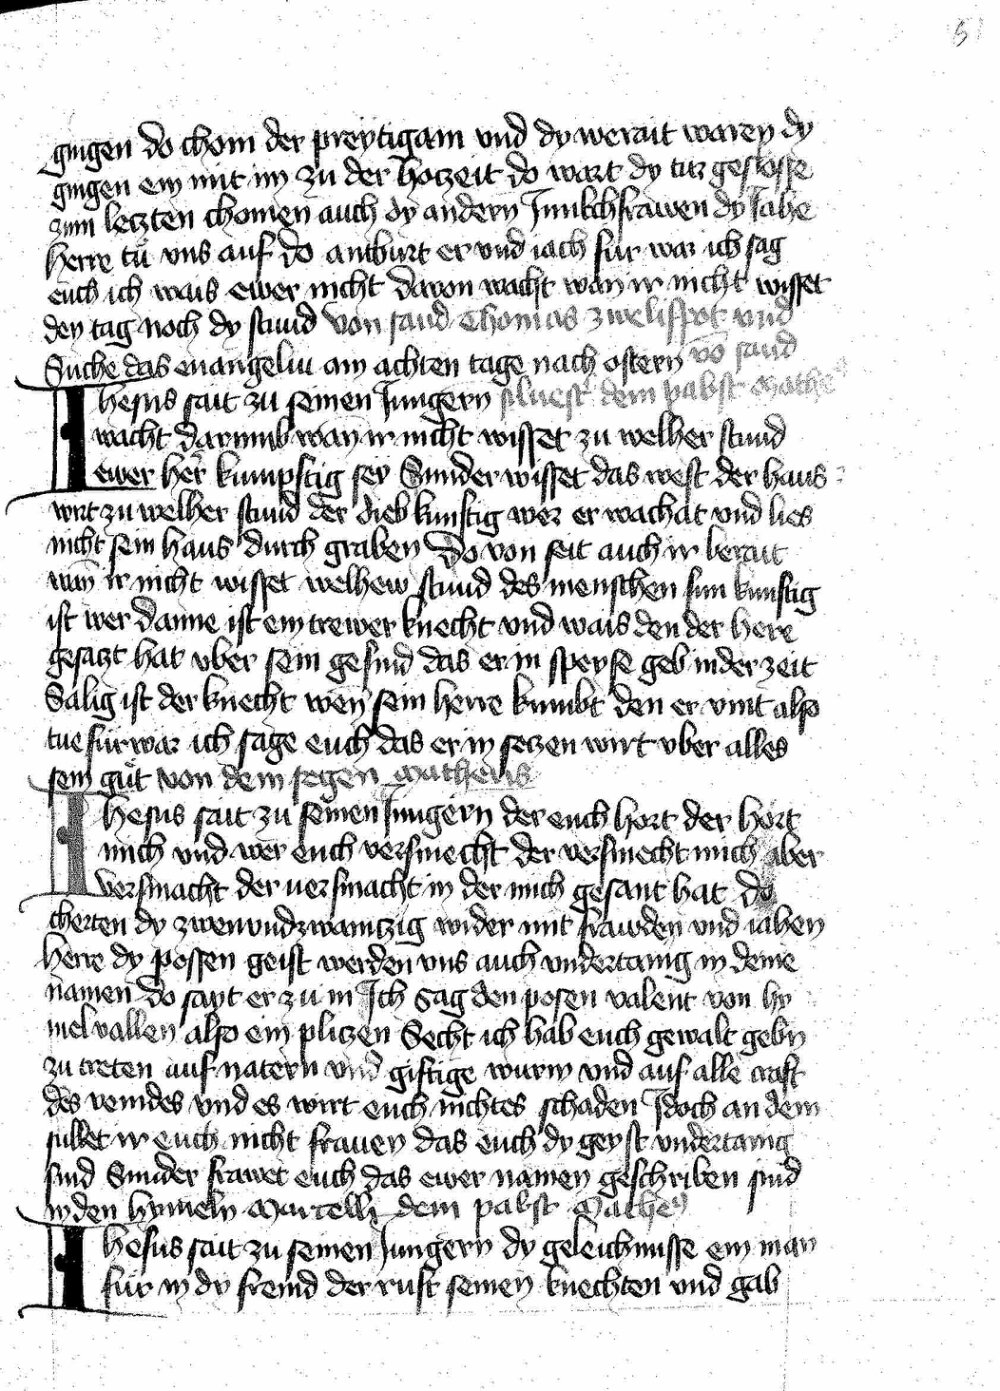 5
gingen do chom der preytigam und dy werait waren dy
gingen ein mit im zu der hotzeit do wart dy tür geslosse
zum letzten chomen auch dy andern Junkchfrawen dy Jahe
herre tu uns auf do antburt er und iach fur war ich sag
euch ich wais ewer nicht davon wacht wan ir nicht wisset
den tag noch dy stund von sand Thomas zwelifpot und
Suche das euangeliu am achten tage nach ostern vo sand
Ihesus sait zu seinen Jungern siluest dem pabst Mathe9
wacht darumb wan ir nicht wisset zu welher stund
ewer her kumpftig sey Sunder wisset das west der haus
wirt zu welher stund der dieb kunftig wer er wachat und lies
nicht sein haus durch graben Do von seit auch ir berait
wan ir nicht wisset welhew stund des menschen sun kunftig
ist wer danne ist ein trewer knecht und wais den der here
gesatzt hat uber sein gesind das er in speyse geb in der zeit
Salig ist der knecht wen sein herre kumbt den er vint also
tue furwar ich sage euch das er in setzen wirt uber alles
sein gut von dem segen Matheus
Ihesus sait zu seinen Jungern der euch hort der hort
mich und wer euch versmecht der versmecht mich aber
versmacht der versmacht in der mich gesant hat do
cherten dy zwenundzwaintzig wider mit frawden und iahen
herre dy possen geist werden uns auch undertanig in deine
namen do sayt er zu in Ich sag den posen valent von hy
mel vallen also ein plitzen Secht ich hab euch gewalt gebn
zu treten auf natern und giftige wurm und auf alle craft
des veindes und es wirt euch nichtes schaden Idoch an dem
sullet ir euch nicht frauen das euch dy geyst undertanig
sind Sunder frawet euch das ewer namen geschriben sind
in den hymeln Marcelli dem pabst Mathe9
Ihesus sait zu seinen Jungern dy geleichnusse ein man
fur in dy fremd der ruft seinen knechten und gab